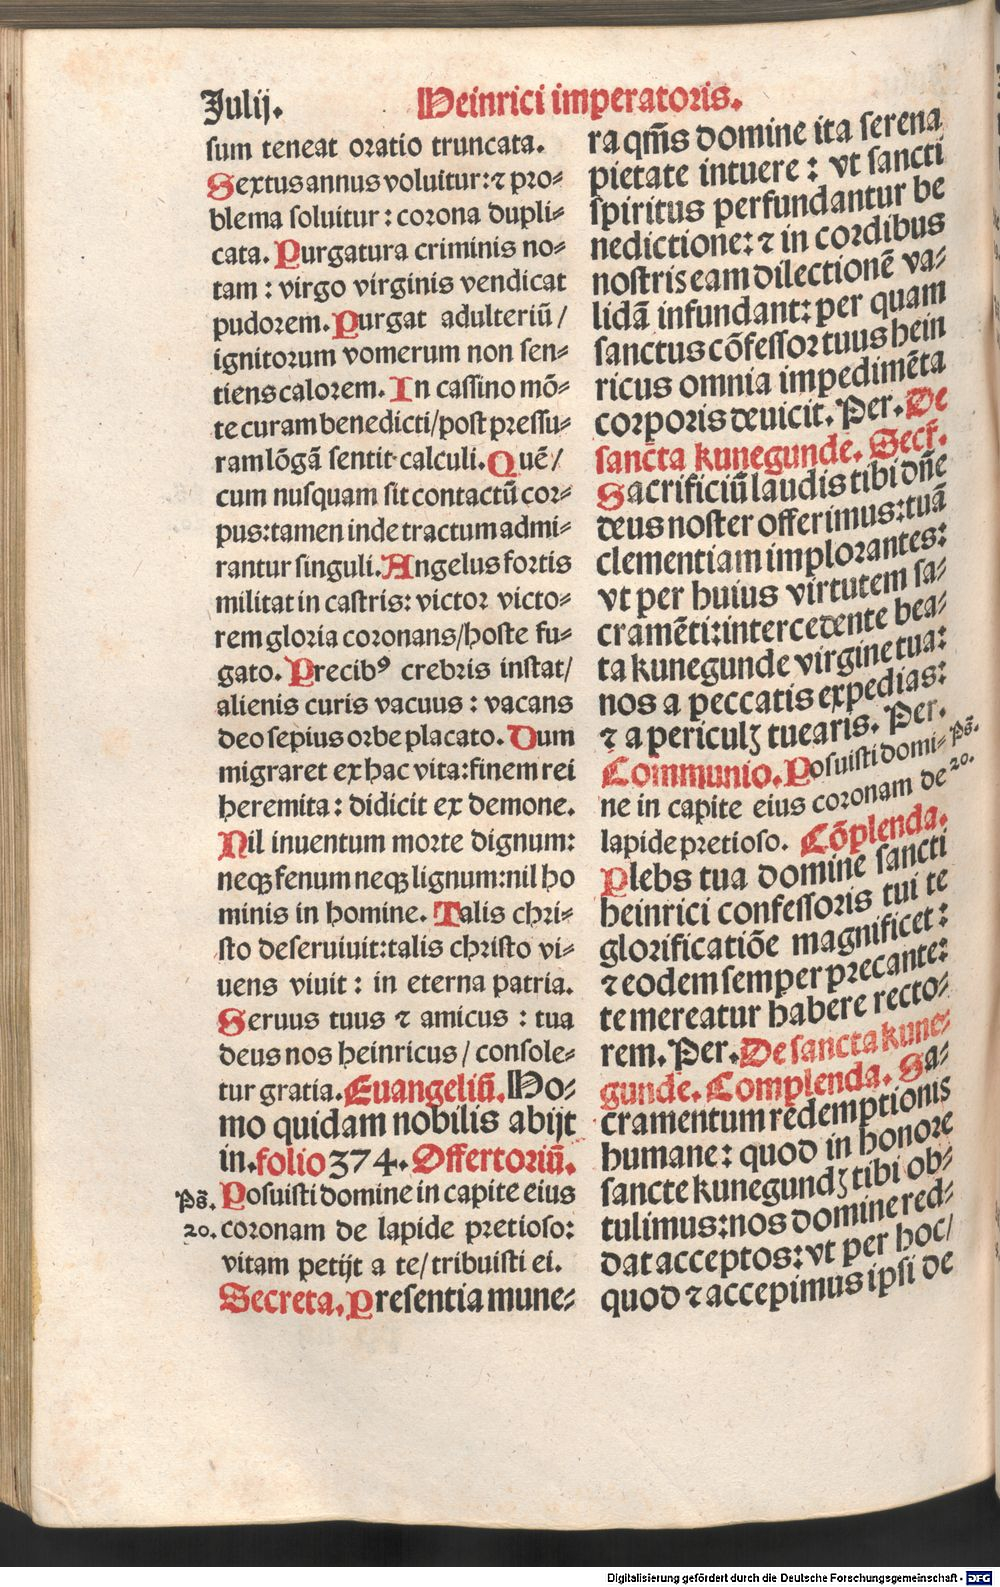 Julij.
Heinrici imperatoris.
sum teneat oratio truncata.
Sextus annus voluitur: ⁊ pro⸗
blema soluitur : corona dupli⸗
cata. Purgatura criminis no⸗
tam : virgo virginis vendicat
pudorem. Purgat adulteriũ /
ignitorum vomerum non sen⸗
tiens calorem. In cassino mõ⸗
te curam benedicti/post pressu⸗
ram lõgã sentit calculi. Quẽ /
cum nusquam sit contactũ cor⸗
pus:tamen inde tractum admi⸗
rantur singuli. Angelus fortis
militat in castris: victor victo⸗
rem gloria coronans/hoste fu⸗
gato. Precibꝰ crebris instat/
alienis curis vacuus : vacans
deo sepius orbe placato. Dum
migraret ex hac vita:finem rei
heremita : didicit ex demone.
Nil inuentum morte dignum:
neqꝫ fenum neqꝫ lignum:nil ho
minis in homine. Talis chri⸗
sto deseruiuit:talis christo vi⸗
uens viuit : in eterna patria.
Seruus tuus ⁊ amicus : tua
deus nos heinricus / console⸗
tur gratia. Euangeliũ. Ho⸗
mo quidam nobilis abijt
in. folio 374. Offertoriũ.
Ps̃. Posuisti domine in capite eius
20. coronam de lapide pretioso:
vitam petijt a te/tribuisti ei.
Secreta. Presentia mune⸗
ra qm̃s domine ita serena
pietate intuere : vt sancti
spiritus perfundantur be
nedictione: ⁊ in cordibus
nostris eam dilectionẽ va⸗
lidã infundant: per quam
sanctus cõfessor tuus hein
ricus omnia impedimẽta
corporis deuicit. Per. De
sancta kunegunde. Secr̃.
Sacrificiũ laudis tibi dñe
deus noster offerimus:tuã
clementiam implorantes:
vt per huius virtutem sa⸗
cramẽti:intercedente bea⸗
ta kunegunde virgine tua:
nos a peccatis expedias:
⁊ a periculꝫ tuearis. Per.
Communio. Posuisti domi⸗ Ps̃.
ne in capite eius coronam de 20.
lapide pretioso. Cõplenda.
Plebs tua domine sancti
heinrici confessoris tui te
glorificatiõe magnificet :
⁊ eodem semper precante:
te mereatur habere recto⸗
rem. Per. De sancta kune⸗
gunde. Complenda. Sa⸗
cramentum redemptionis
humane : quod in honore
sancte kunegundꝫ tibi ob⸗
tulimus:nos domine red⸗
dat acceptos: vt per hoc/
quod ⁊ accepimus ipsi de
Digitalisierung gefördert durch die Deutsche Forschungsgemeinschaft - DFG